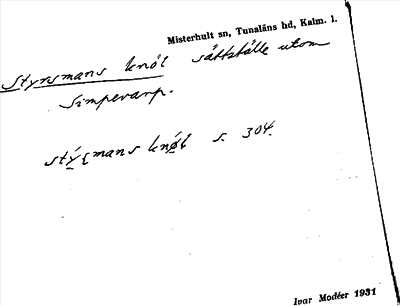 Misterhult sn, Tunaläns hd, Kalm. l.
Styrsmans knöl sättställe utom
Simpevarp.
stýʟmans knøl s. 304.
Ivar Modéer 1931